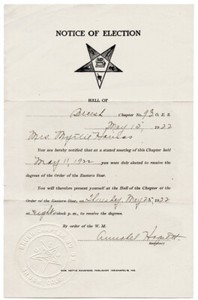 NOTICE OF ELECTION
HALL OF
Chapter No. 93 O. E. S.
May 15, 1922
Mrs. Myrtle
You are hereby notified that at a stated meeting of this Chapter held
May 11, 1922 you were duly elected to receive the
degrees of the Order of the Eastern Star.
You will therefore present yourself at the Hall of the Chapter of the
Order of the Eastern Star, on Thursday, May 25, 1922
at eight o'clock p.m., to receive the degrees.
By order of the W. M.
Secretary.